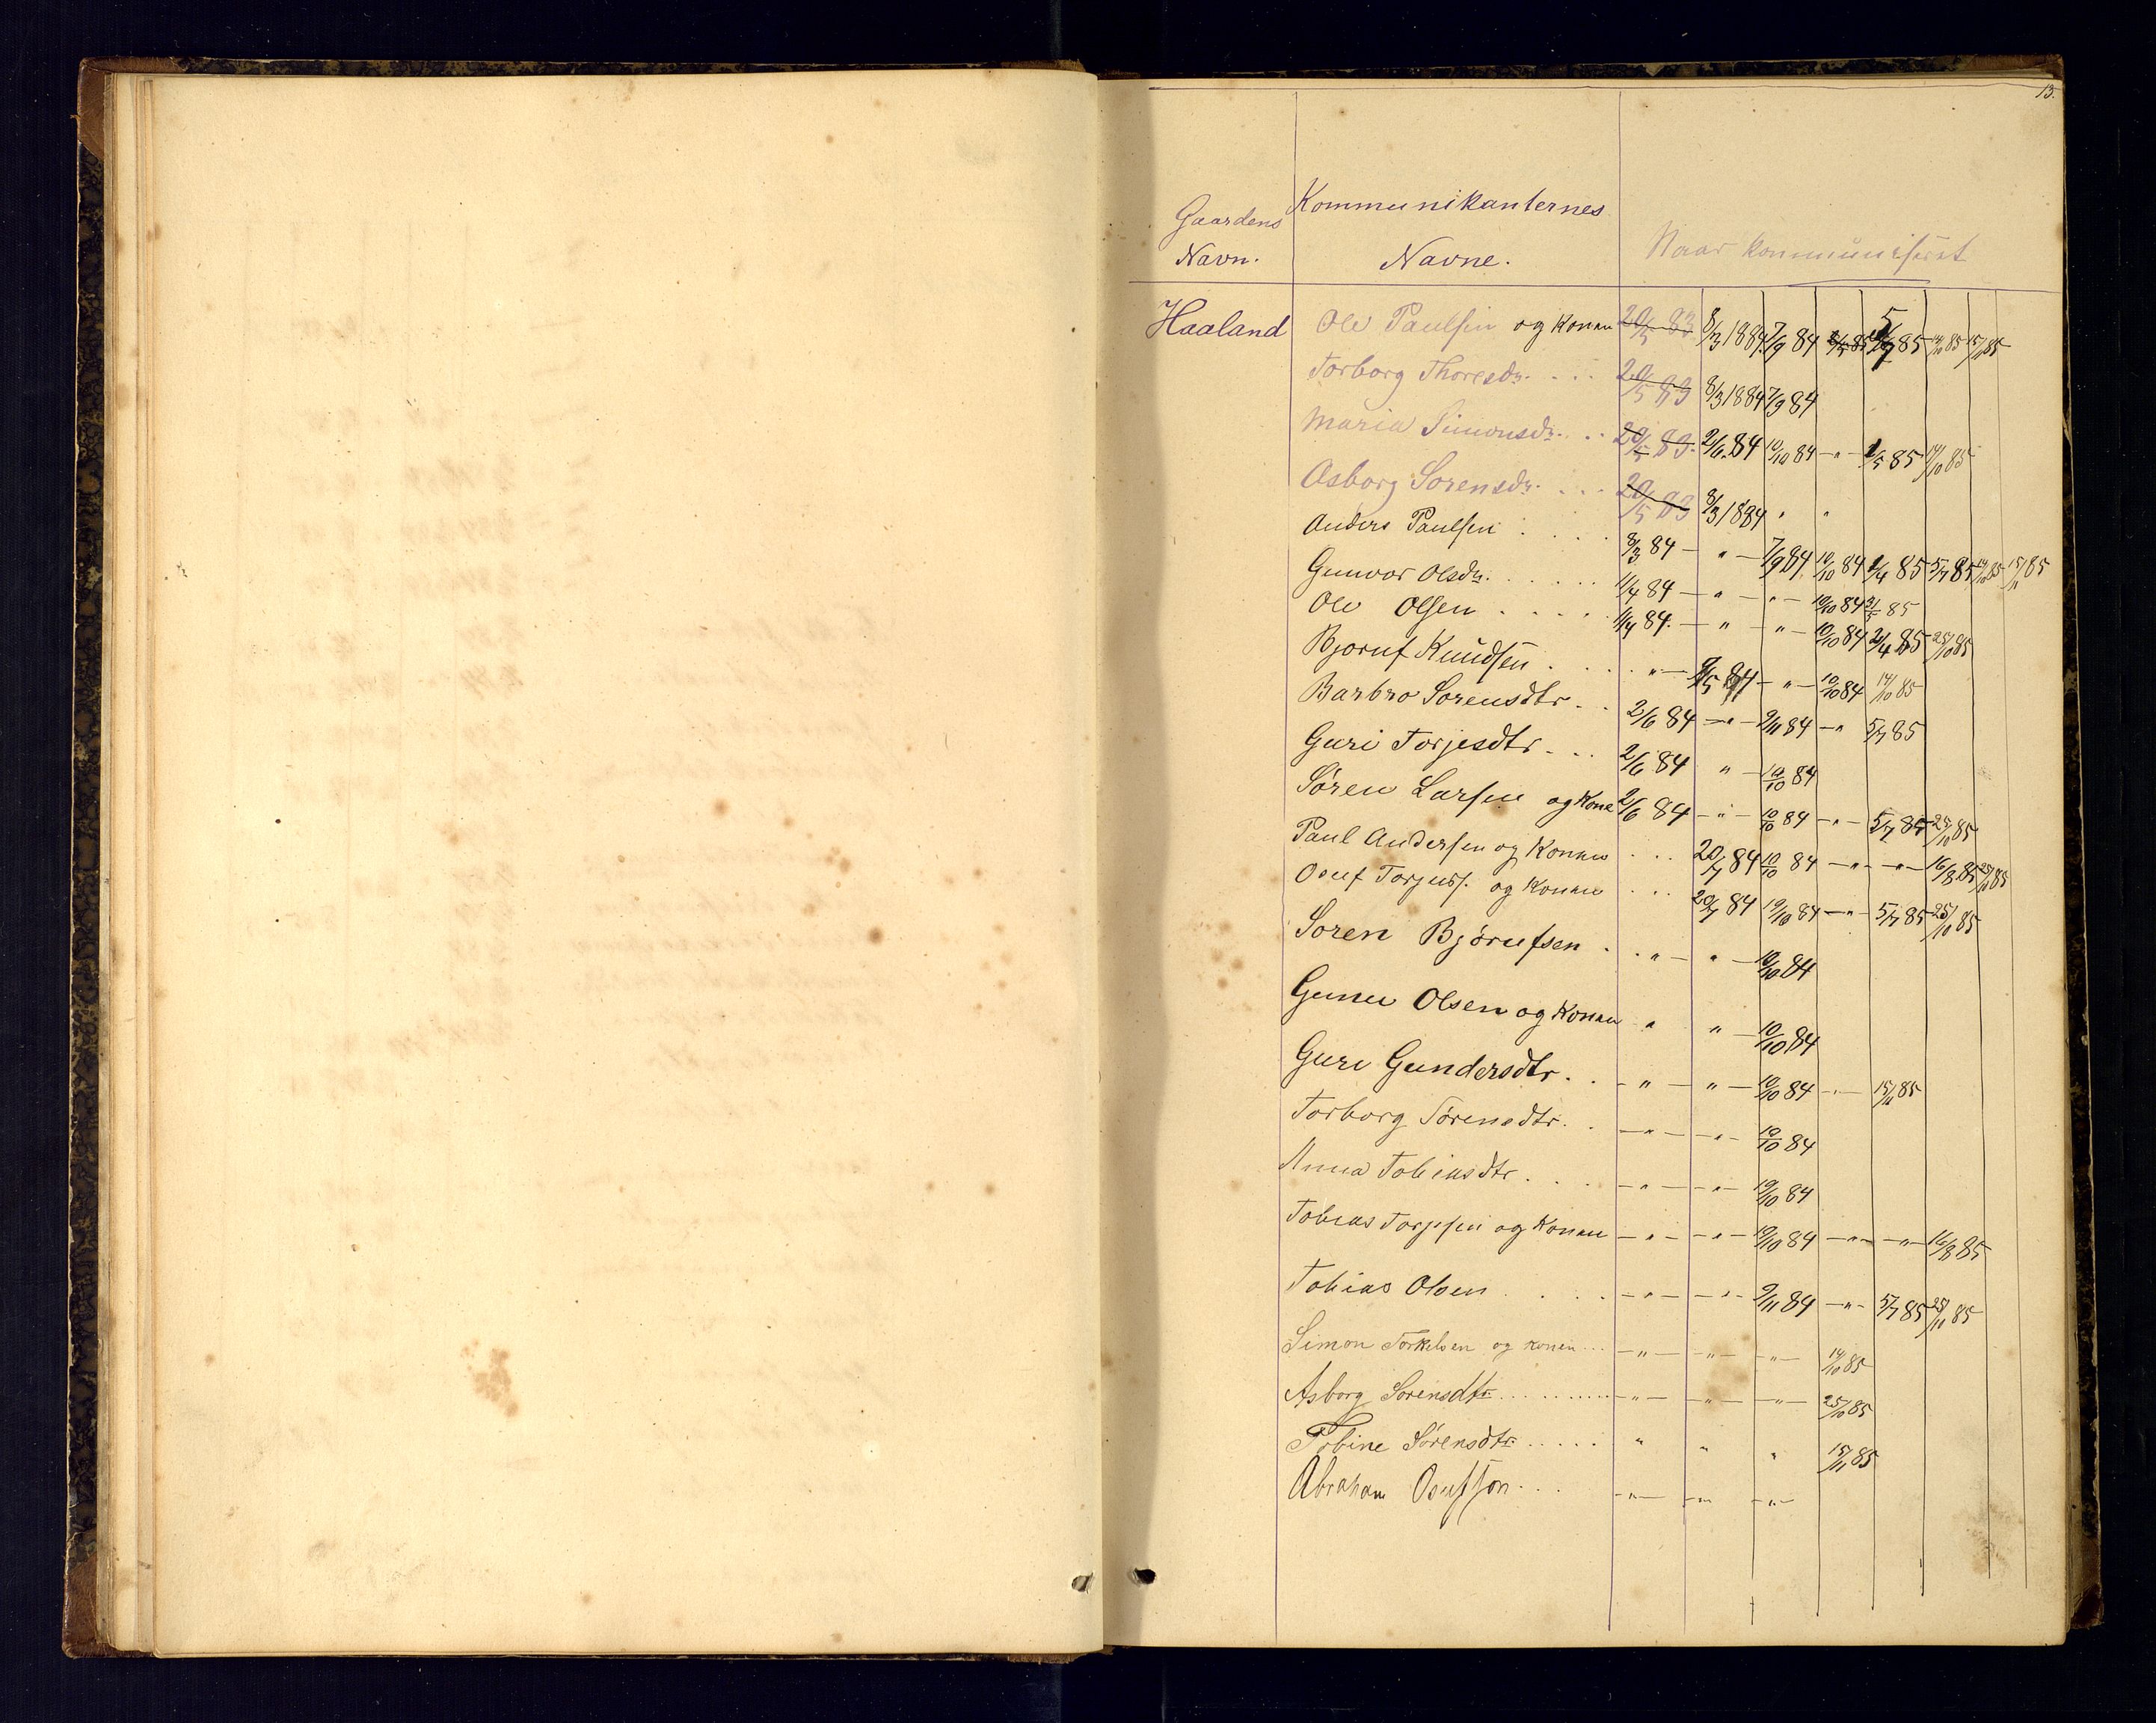 13.
Gaardens Navn.
Kommunikanternes Navne.
Naar kommuniseret
Haaland Ole Paulsen og Konen 20/5 83 8/3 1884 7/9 84 5/7 85 14/10 85 15/11 85
Torborg Thoresdr. . . . 20/5 83 8/3 1884 7/9 84
Maria Simonsdr. . . 20/5 83. 2/6 84 10/10 84 — " — 2/5 85 14/10 85
Asborg Sorensdr. . . . 20/5 83 8/3 1884 " "
Anders Paulsen . . . . 8/3 84 — " — 7/9 84 10/10 84 2/4 85 5/7 85 14/10 85 15/11 85
Gunvor Olsdr. . . . . . . 11/4 84 — " — " — 10/10 84 31/5 85
Ole Olsen . . . . . 11/4 84. — " — " — 10/10 84 2/4 85 25/10 85
Bjoruf Knudsen . . . . " — 4/5 84 — " — 10/10 84 14/10 85
Barbro Sorensdtr . . 2/6 84 — " — 9/11 84 — " 5/7 85
Guri Torjesdtr . . . 2/6 84 " — 10/10 84
Søren Larsen og Kone 2/6 84 — " — 10/10 84 — " — 5/7 85 25/10 85
Paul Andersen og Konen . . . 20/7 84 10/10 84 — " — " — 16/8 85 25/11 85
Osuf Torjuss. og Konen . . . 20/7 84 10/10 84 — " — 5/7 85 25/10 85
Soren Bjørufsen . . " — " — 10/10 84
Olsen og Konen " " — 10/10 84
Guri Gundersdtr. . — " — " — 10/10 84 — " — 15/11 85
Torborg Sørensdtr. . — " — — " — 10/10 84
Anna Tobiasdtr . . . — " — — " — 10/10 84
Tobias Torjesen og Konen — " — — " — 10/10 84 — " — — " — 16/8 85
Tobias Olsen . . . . — " — — " — 9/11 84 — " — 5/7 85 25/11 85
Simon Torkelsen og konen . . . — " — — " — — " — 14/10 85
Asborg Sorensdtr . . . . . . . . . — " — — " — — " — 25/10 85
Tobine Sørensdtr . . . . . " " " 15/11 85
Abraham Osufson . . . — " — — " — — " —